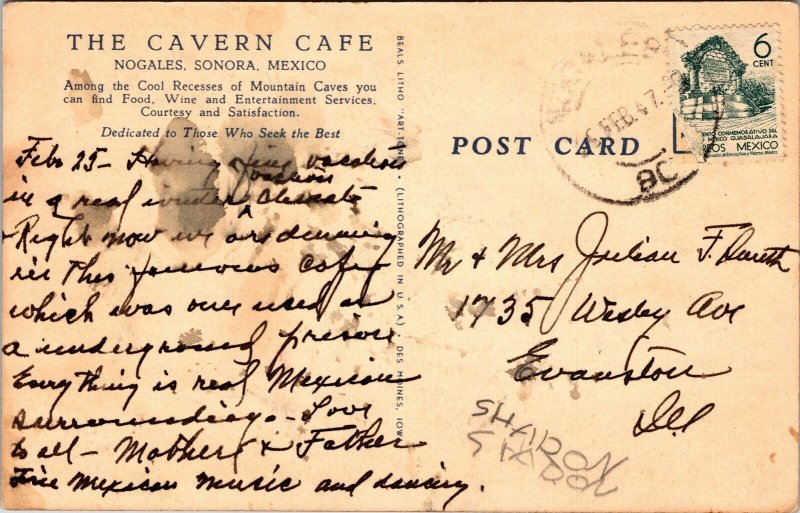 THE CAVERN CAFE
NOGALES, SONORA, MEXICO
Among the Cool Recesses of Mountain Caves you
can find Food, Wine and Entertainment Services,
Courtesy and Satisfaction.
Dedicated to Those Who Seek the Best
Feb 25 - Having fine vacation
in a real winter climate
Right now we are dinning
in this famous Cafe
which was once used as
a underground prison
Everything is real Mexican
surroundings - Love
to all - Mother & Father
Fine Mexican music and dancing.
BEALS LITHO "ART-TONE" - (LITHOGRAPHED IN U.S.A.) - DES MOINES, IOWA
POST CARD
FEB. 47
BC
6
CENT
CONMEMORATIVO DEL
MEXICO GUADALAJARA
MEXICO
Mr & Mrs Julian F.
1735 Wesley Ave
Evanston
Ill